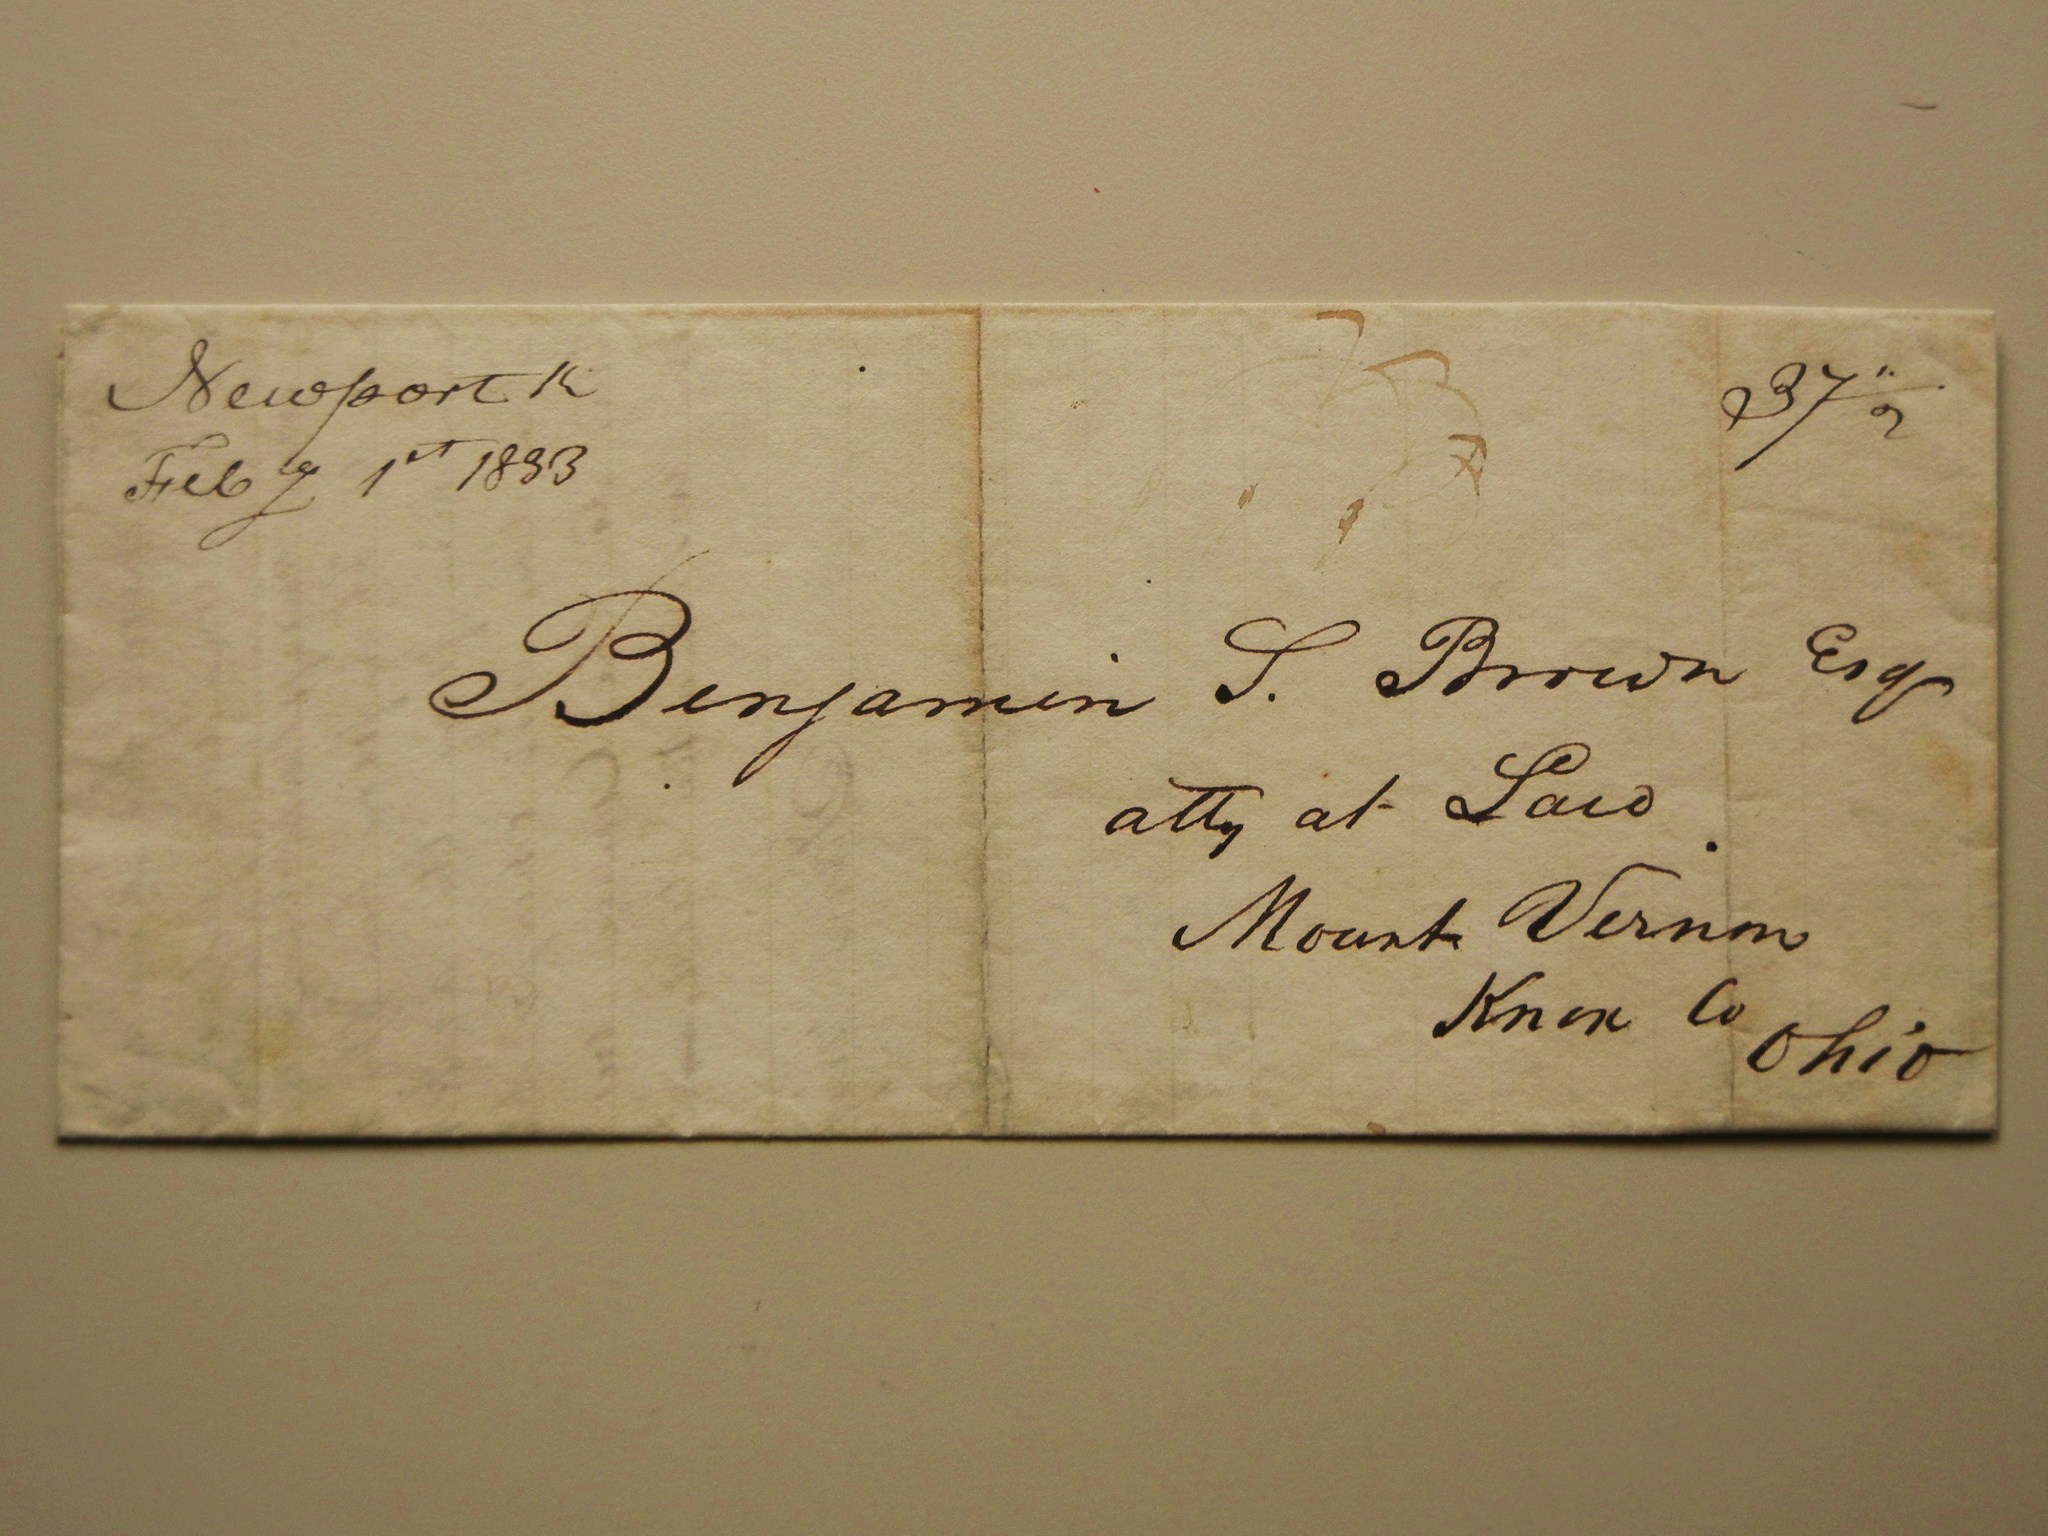 Newport K
Feby 1st 1833
37 1/2
Benjamin S. Brown Esq
atty at Law
Mount Vernon
Knox Co
Ohio